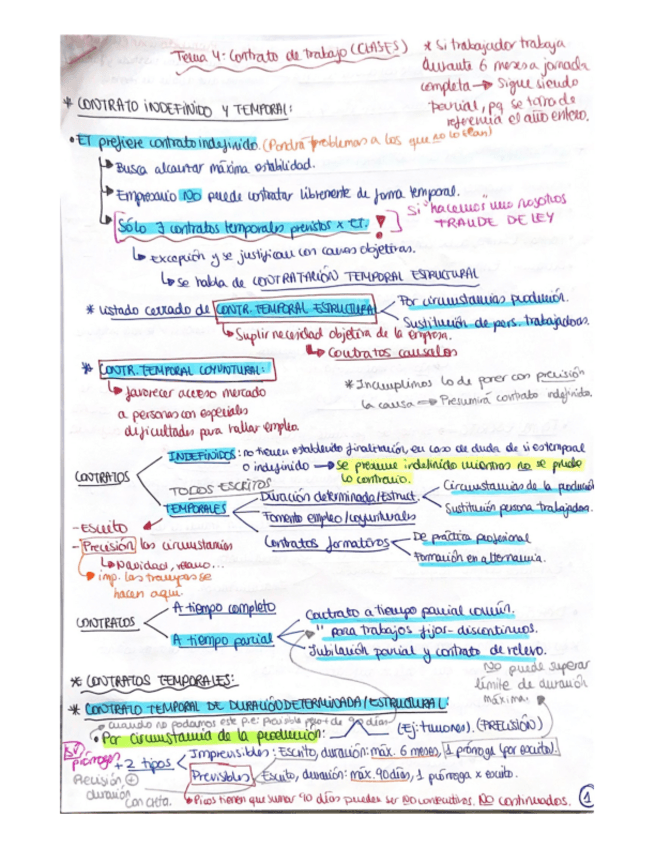 Tema 4: Contrato de trabajo (CLASES)
* Si trabajador trabaja
durante 6 meses a jornada
completa → Sigue siendo
parcial, pq se toma de
referencia el año entero.
* CONTRATO INDEFINIDO Y TEMPORAL:
• ET prefiere contrato indefinido. (Pondrá problemas a los que no lo sean)
↳ Busca alcanzar máxima estabilidad.
↳ Empresario NO puede contratar libremente de forma temporal.
↳ Sólo 3 contratos temporales previstos x ET. !
Si "hacemos" uno nosotros
FRAUDE DE LEY
↳ Excepción y se justifican con causas objetivas.
↳ Se habla de CONTRATACIÓN TEMPORAL ESTRUCTURAL
* Listado cerrado de CONTR. TEMPORAL ESTRUCTURAL
Por circunstancias producción.
Sustitución de pers. trabajadoras.
↳ Suplir necesidad objetiva de la empresa.
↳ Contratos causales
* CONTR. TEMPORAL COYUNTURAL:
↳ favorecer acceso mercado
a personas con especiales
dificultades para hallar empleo.
* Incumplimos lo de poner con precisión
la causa → Presumirá contrato indefinido.
CONTRATOS
INDEFINIDOS: no tienen establecido finalización, en caso de duda de si es temporal
o indefinido → se presume indefinido mientras no se pruebe
lo contrario.
TODOS ESCRITOS
TEMPORALES
Duración determinada/Estruct.
Circunstancias de la producción
Sustitución persona trabajadora.
Fomento empleo/coyunturales
Contratos formativos
De práctica profesional
Formación en alternancia.
- Escrito
- Precisión las circunstancias
↳ Navidad, verano...
imp. las trampas se
hacen aquí.
CONTRATOS
A tiempo completo
A tiempo parcial
Contrato a tiempo parcial común.
" para trabajos fijos-discontinuos.
Jubilación parcial y contrato de relevo.
No puede superar
límite de duración
máxima.
* CONTRATOS TEMPORALES:
* CONTRATO TEMPORAL DE DURACIÓN DETERMINADA/ESTRUCTURAL:
cuando no podamos este previsible + de 90 días
• Por circunstancia de la producción:
(Ej: turrones). (PRECISIÓN)
SÍ
prórrogas
+ 2 tipos
Imprevisibles: Escrito, duración: máx. 6 meses, 1 prórroga (por escrito).
Previsibles: Escrito, duración: máx. 90 días, 1 prórroga x escrito.
Precisión ⊕
duración
concreta.
↳ Picos tienen que sumar 90 días pueden ser no consecutivos. NO continuados.
1